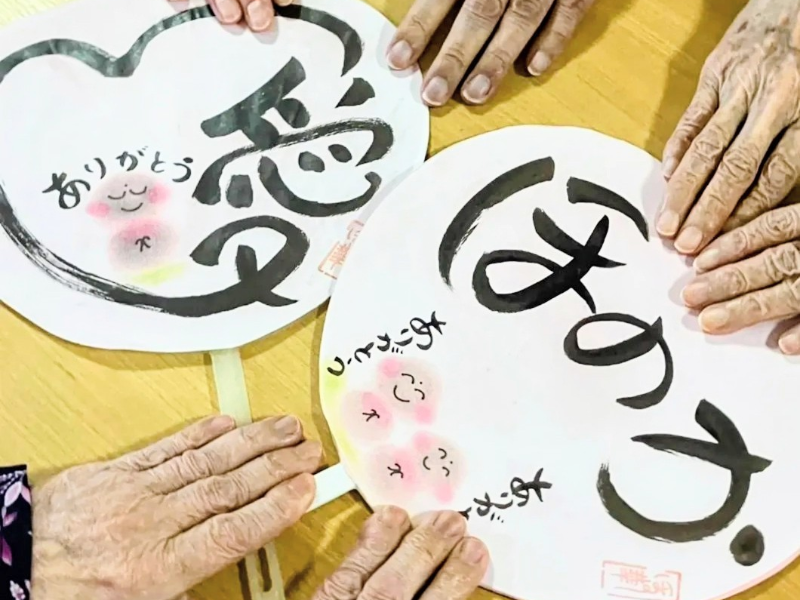 愛
ありがとう
ほのか
ありがとう
ありがと